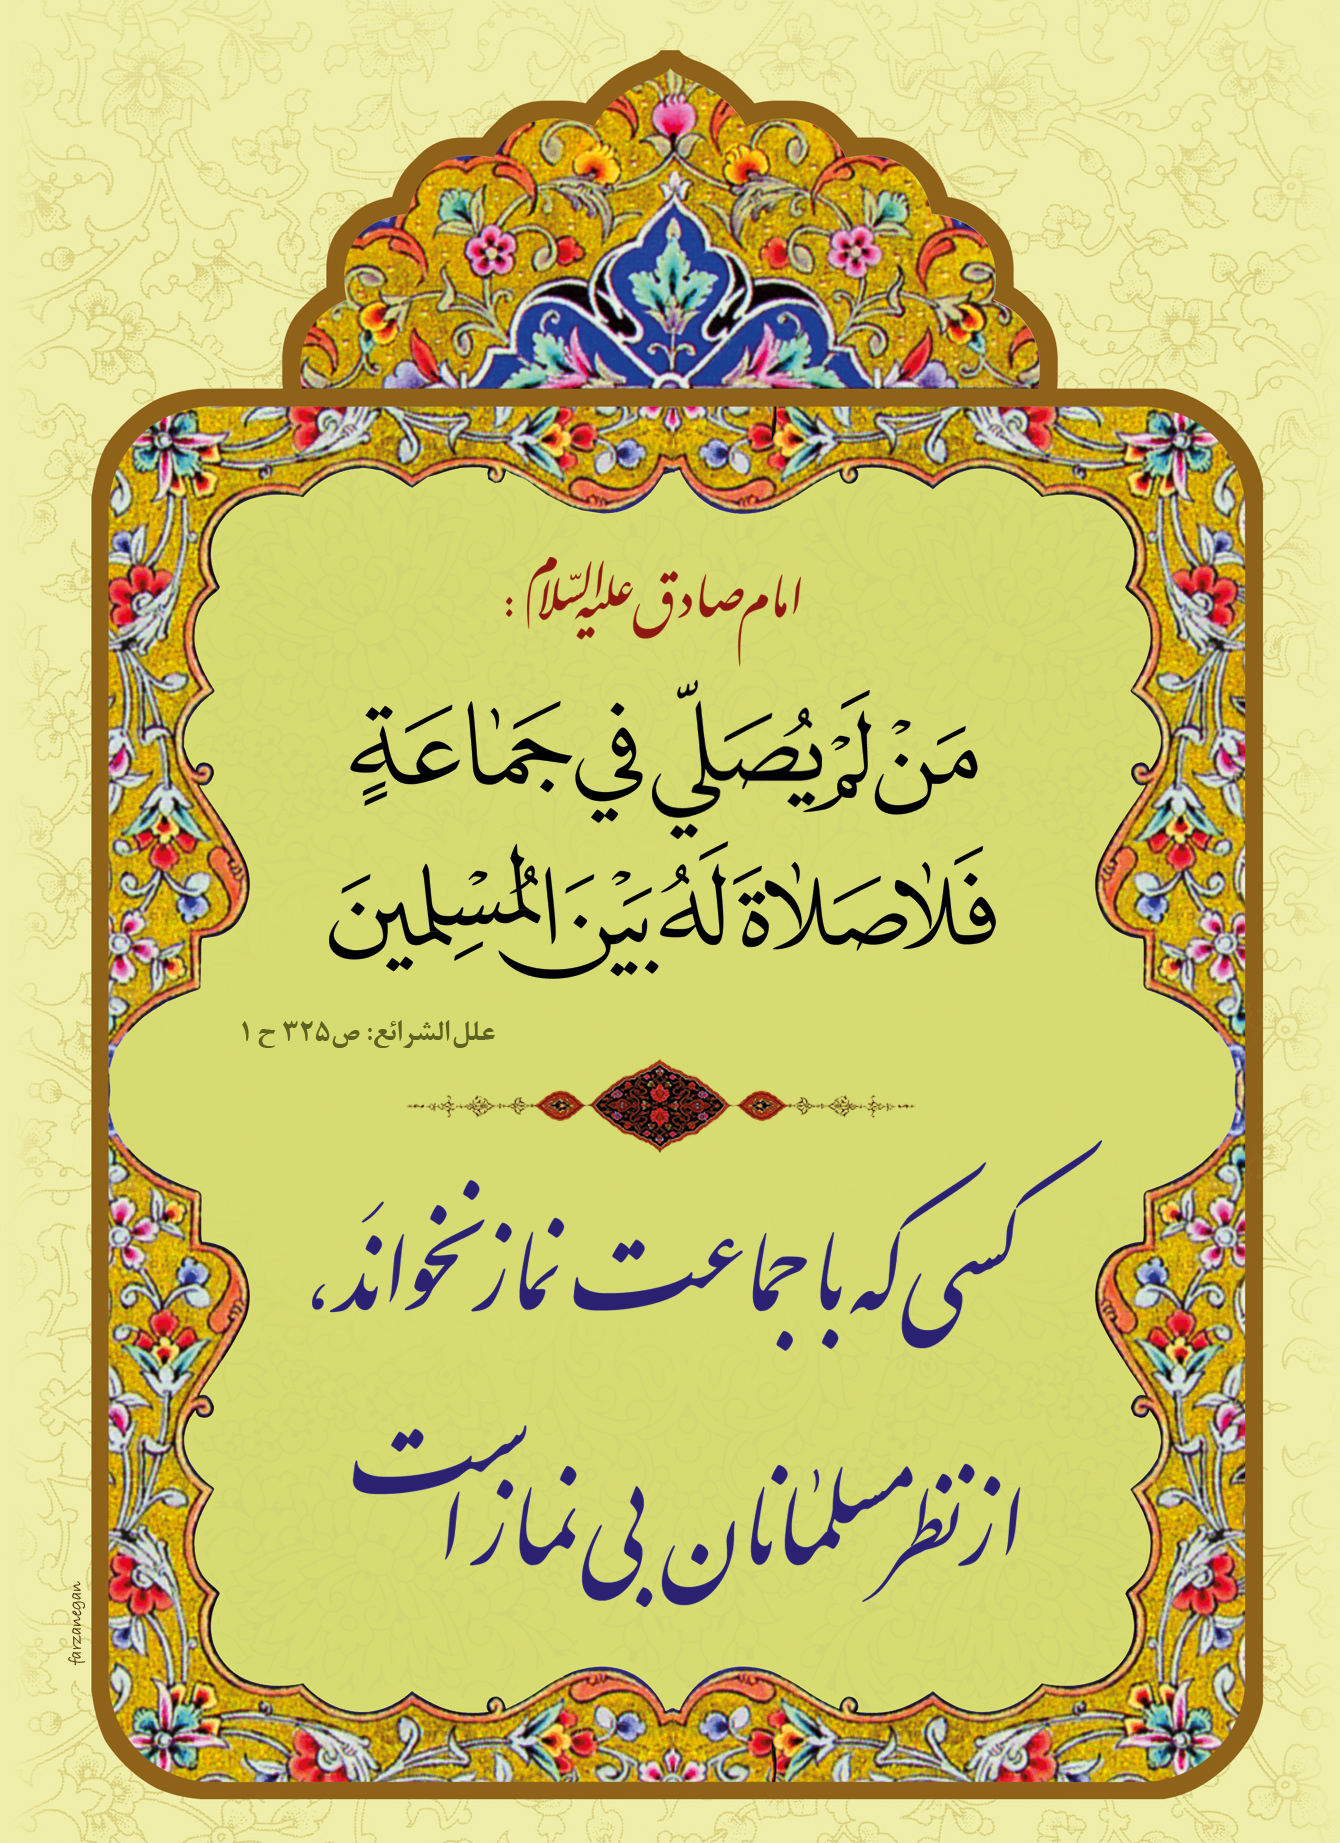 امام صادق علیه السّلام :
مَنْ لَمْ يُصَلّي في جَمٰاعَةٍ
فَلٰا صَلٰاةَ لَهُ بَيْنَ الْمُسْلِمينَ
علل الشرائع: ص۳۲۵ ح ۱
کسی که با جماعت نماز نخوانَد،
از نظر مسلمٰانان بی نماز است
farzanegan